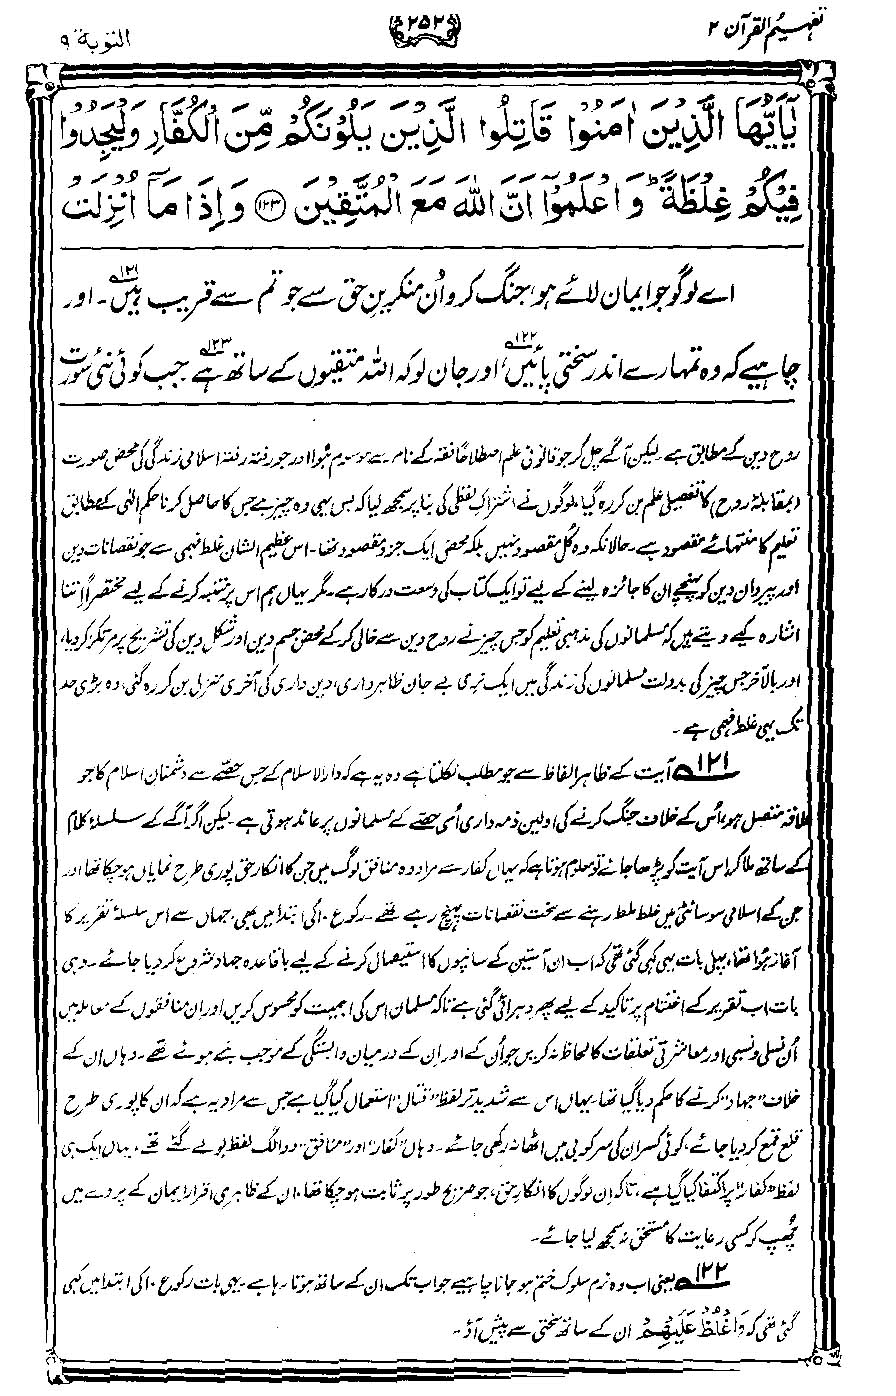 تفہیم القرآن ۲
۲۵۲
التوبۃ ۹
يٰۤاَيُّهَا الَّذِيْنَ اٰمَنُوْا قَاتِلُوا الَّذِيْنَ يَلُوْنَكُمْ مِّنَ الْكُفَّارِ وَلْيَجِدُوْا
فِيْكُمْ غِلْظَةً ؕ وَاعْلَمُوْۤا اَنَّ اللّٰهَ مَعَ الْمُتَّقِيْنَ ﴿۱۲۳﴾ وَاِذَا مَاۤ اُنْزِلَتْ
اے لوگو جو ایمان لائے ہو، جنگ کرو اُن منکرینِ حق سے جو تم سے قریب ہیں۔ ۱۲۱ اور
چاہیے کہ وہ تمہارے اندر سختی پائیں، ۱۲۲ اور جان لو کہ اللہ متقیوں کے ساتھ ہے ۱۲۳ جب کوئی نئی سورت
روح دین کے مطابق ہے۔ لیکن آگے چل کر جو قانونی علم اصطلاحاً فقہ کے نام سے موسوم ہوا اور جو رفتہ رفتہ اسلامی زندگی کی محض صورت
(بمقابلۂ روح) کا تفصیلی علم بن کر رہ گیا، لوگوں نے اشتراکِ لفظی کی بنا پر سمجھ لیا کہ بس یہی وہ چیز ہے جس کا حاصل کرنا حکم الٰہی کے مطابق
تعلیم کا منتہائے مقصود ہے۔ حالانکہ وہ کُل مقصود نہیں بلکہ محض ایک جزو مقصود تھا۔ اس عظیم الشان غلط فہمی سے جو نقصانات دین
اور پیروان دین کو پہنچے ان کا جائزہ لینے کے لیے تو ایک کتاب کی وسعت درکار ہے۔ مگر یہاں ہم اس پر متنبہ کرنے کے لیے مختصراً اتنا
اشارہ کیے دیتے ہیں کہ مسلمانوں کی مذہبی تعلیم کو جس چیز نے روح دین سے خالی کر کے محض جسم دین اور شکل دین کی تشریح پر مرتکز کر دیا،
اور بالآخر جس چیز کی بدولت مسلمانوں کی زندگی میں ایک نری بے جان ظاہر داری، دین داری کی آخری منزل بن کر رہ گئی، وہ بڑی حد
تک یہی غلط فہمی ہے۔
۱۲۱ آیت کے ظاہر الفاظ سے جو مطلب نکلتا ہے وہ یہ ہے کہ دارالاسلام کے جس حصّے سے دشمنان اسلام کا جو
علاقہ متصل ہو، اُس کے خلاف جنگ کرنے کی اولین ذمہ داری اُسی حصّے کے مسلمانوں پر عائد ہوتی ہے۔ لیکن اگر آگے کے سلسلۂ کلام
کے ساتھ ملا کر اس آیت کو پڑھا جائے تو معلوم ہوتا ہے کہ یہاں کفار سے مراد وہ منافق لوگ ہیں جن کا انکار حق پوری طرح نمایاں ہو چکا تھا اور
جن کے اسلامی سوسائٹی میں خلط ملط رہنے سے سخت نقصانات پہنچ رہے تھے۔ رکوع ۱۰ کی ابتدا میں بھی، جہاں سے اس سلسلۂ تقریر کا
آغاز ہوا تھا، پہلی بات یہی کہی گئی تھی کہ اب ان آستین کے سانپوں کا استیصال کرنے کے لیے باقاعدہ جہاد شروع کر دیا جائے۔ وہی
بات اب تقریر کے اختتام پر تاکید کے لیے پھر دہرائی گئی ہے تاکہ مسلمان اس کی اہمیت کو محسوس کریں اور ان منافقوں کے معاملہ میں
اُن نسلی و نسبی اور معاشرتی تعلقات کا لحاظ نہ کریں جو اُن کے اور ان کے درمیان وابستگی کے موجب بنے ہوئے تھے۔ وہاں ان کے
خلاف "جہاد" کرنے کا حکم دیا گیا تھا، یہاں اس سے شدید تر لفظ "قتال" استعمال کیا گیا ہے جس سے مراد یہ ہے کہ ان کا پوری طرح
قلع قمع کر دیا جائے، کوئی کسر ان کی سرکوبی میں اٹھا نہ رکھی جائے۔ وہاں "کفار" اور "منافق" دو الگ لفظ بولے گئے تھے، یہاں ایک ہی
لفظ "کفار" پر اکتفا کیا گیا ہے، تاکہ ان لوگوں کا انکار حق، جو صریح طور پر ثابت ہو چکا تھا، ان کے ظاہری اقرار ایمان کے پردے میں
چُھپ کر کسی رعایت کا مستحق نہ سمجھ لیا جائے۔
۱۲۲ یعنی اب وہ نرم سلوک ختم ہو جانا چاہیے جو اب تک ان کے ساتھ ہوتا رہا ہے۔ یہی بات رکوع ۱۰ کی ابتدا میں کہی
گئی تھی کہ وَاغْلُظْ عَلَيْهِمْ ان کے ساتھ سختی سے پیش آؤ۔